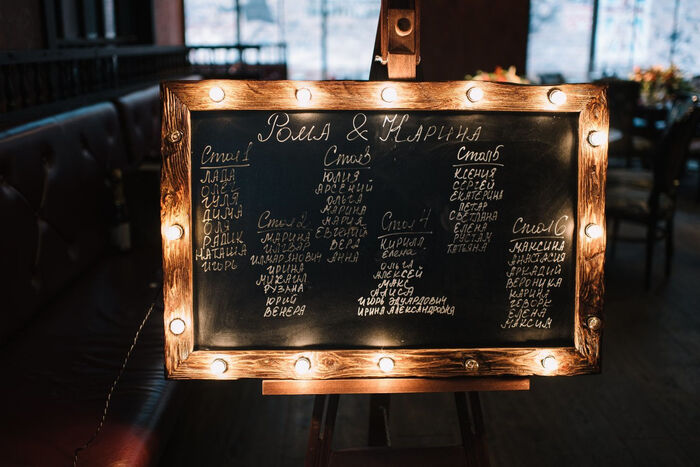 Рома & Карина
Стол 1
ЛАДА
ОЛЕГ
ГУЛЯ
ДИМА
ОЛЯ
РАДИК
НАТАША
ИГОРЬ
Стол 2
МАРИНА
ИЛЬДАР
ИРИНА
МИХАИЛ
РУЗАНА
ЮРИЙ
ВЕНЕРА
Стол 3
ЮЛИЯ
АРСЕНИЙ
ОЛЬГА
МАРИНА
МАРИЯ
ЕВГЕНИЙ
ВЕРА
АННА
Стол 4
КИРИЛЛ
ЕЛЕНА
ОЛЬГА
АЛЕКСЕЙ
МАКС
АЛИСА
ИГОРЬ ЭДУАРДОВИЧ
ИРИНА АЛЕКСАНДРОВНА
Стол 5
КСЕНИЯ
СЕРГЕЙ
ЕКАТЕРИНА
ПЕТР
СВЕТЛАНА
ЕЛЕНА
РУСЛАН
ТАТЬЯНА
Стол 6
МАКСИМ
АНАСТАСИЯ
АРКАДИЙ
ВЕРОНИКА
КАРИНА
ГЕВОРК
ЕЛЕНА
МАКСИМ